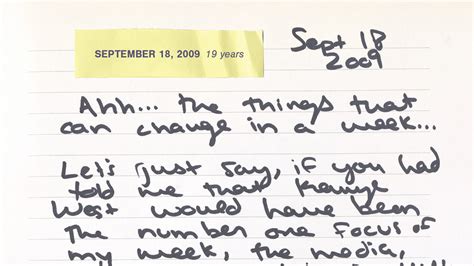 SEPTEMBER 18, 2009 19 years
Sept 18
2009
Ahh... the things that
can change in a week...
Let's just say, if you had
told me that Kanye
West would have been
the number one focus of
my week, the media,